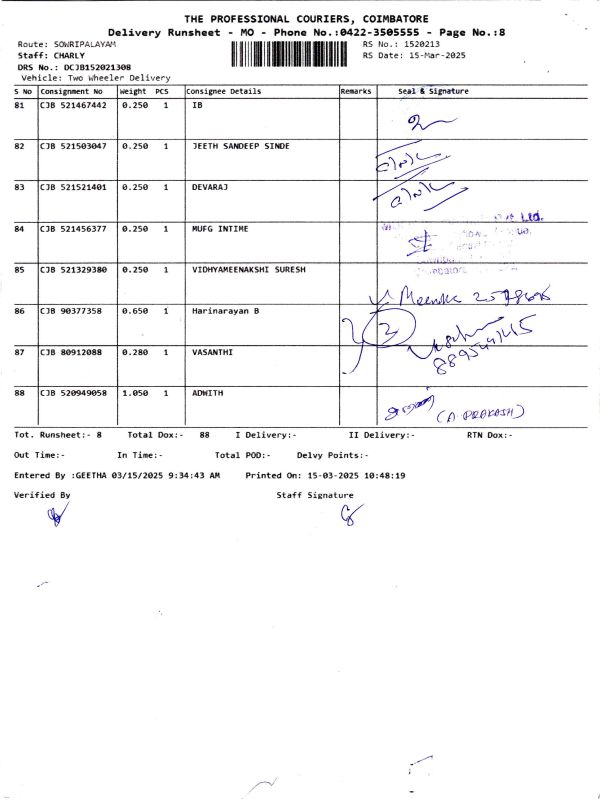 THE PROFESSIONAL COURIERS, COIMBATORE
Delivery Runsheet - MO - Phone No.:0422-3505555 - Page No.:8
Route: SOWRIPALAYAM
RS No.: 1520213
Staff: CHARLY
RS Date: 15-Mar-2025
DRS No.: DCJB152021308
Vehicle: Two Wheeler Delivery
S No Consignment No Weight PCS Consignee Details Remarks Seal & Signature
81 CJB 521467442 0.250 1 IB
82 CJB 521503047 0.250 1 JEETH SANDEEP SINDE
83 CJB 521521401 0.250 1 DEVARAJ
84 CJB 521456377 0.250 1 MUFG INTIME
Ltd.
85 CJB 521329380 0.250 1 VIDHYAMEENAKSHI SURESH
86 CJB 90377358 0.650 1 Harinarayan B
2
87 CJB 80912088 0.280 1 VASANTHI
88 CJB 520949058 1.050 1 ADWITH
(A. PRAKASH)
Tot. Runsheet:- 8 Total Dox:- 88 I Delivery:- II Delivery:- RTN Dox:-
Out Time:- In Time:- Total POD:- Delvy Points:-
Entered By :GEETHA 03/15/2025 9:34:43 AM Printed On: 15-03-2025 10:48:19
Verified By Staff Signature